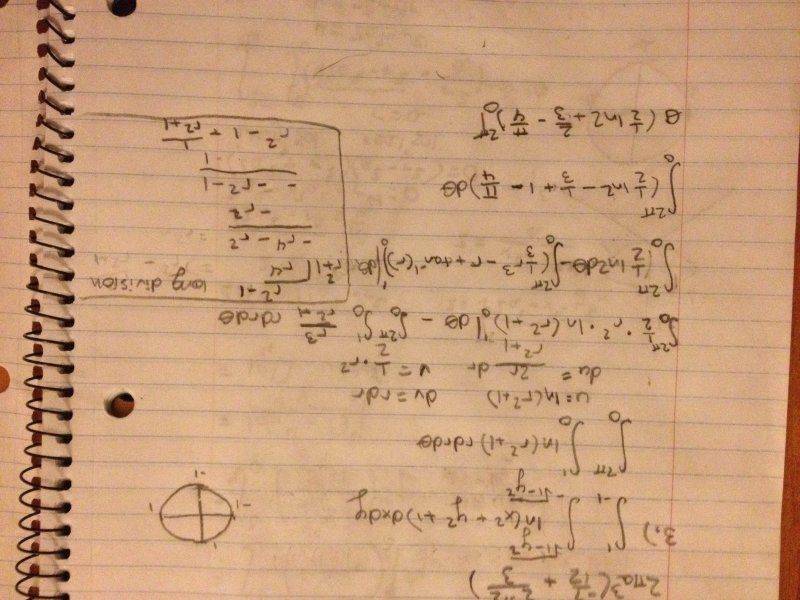 2πa³(
3.) ∫₋₁¹ ∫_{-√(1-y²)}^{√(1-y²)} ln(x² + y² + 1) dx dy
1 -1 1 -1
∫₀^{2π} ∫₀¹ ln(r²+1) r dr dθ
u = ln(r²+1) dv = r dr
du = 2r/(r²+1) dr v = 1/2 · r²
∫₀^{2π} 1/2 · r² · ln(r²+1) |₀¹ dθ - ∫₀^{2π} ∫₀¹ r³/(r²+1) r dr dθ
∫₀^{2π} (1/2 ln2 dθ - ∫₀^{2π} (1/3 r³ - r + tan⁻¹(r)) |₀¹ dθ)
∫₀^{2π} (1/2 ln2 - 1/3 + 1 - π/4) dθ
θ (1/2 ln2 + 2/3 - π/4) |₀^{2π}
long division
r² - 1
r²+1 | r⁴
- r⁴ - r²
- r²
- - r² - 1
1
r² - 1 + 1/(r²+1)